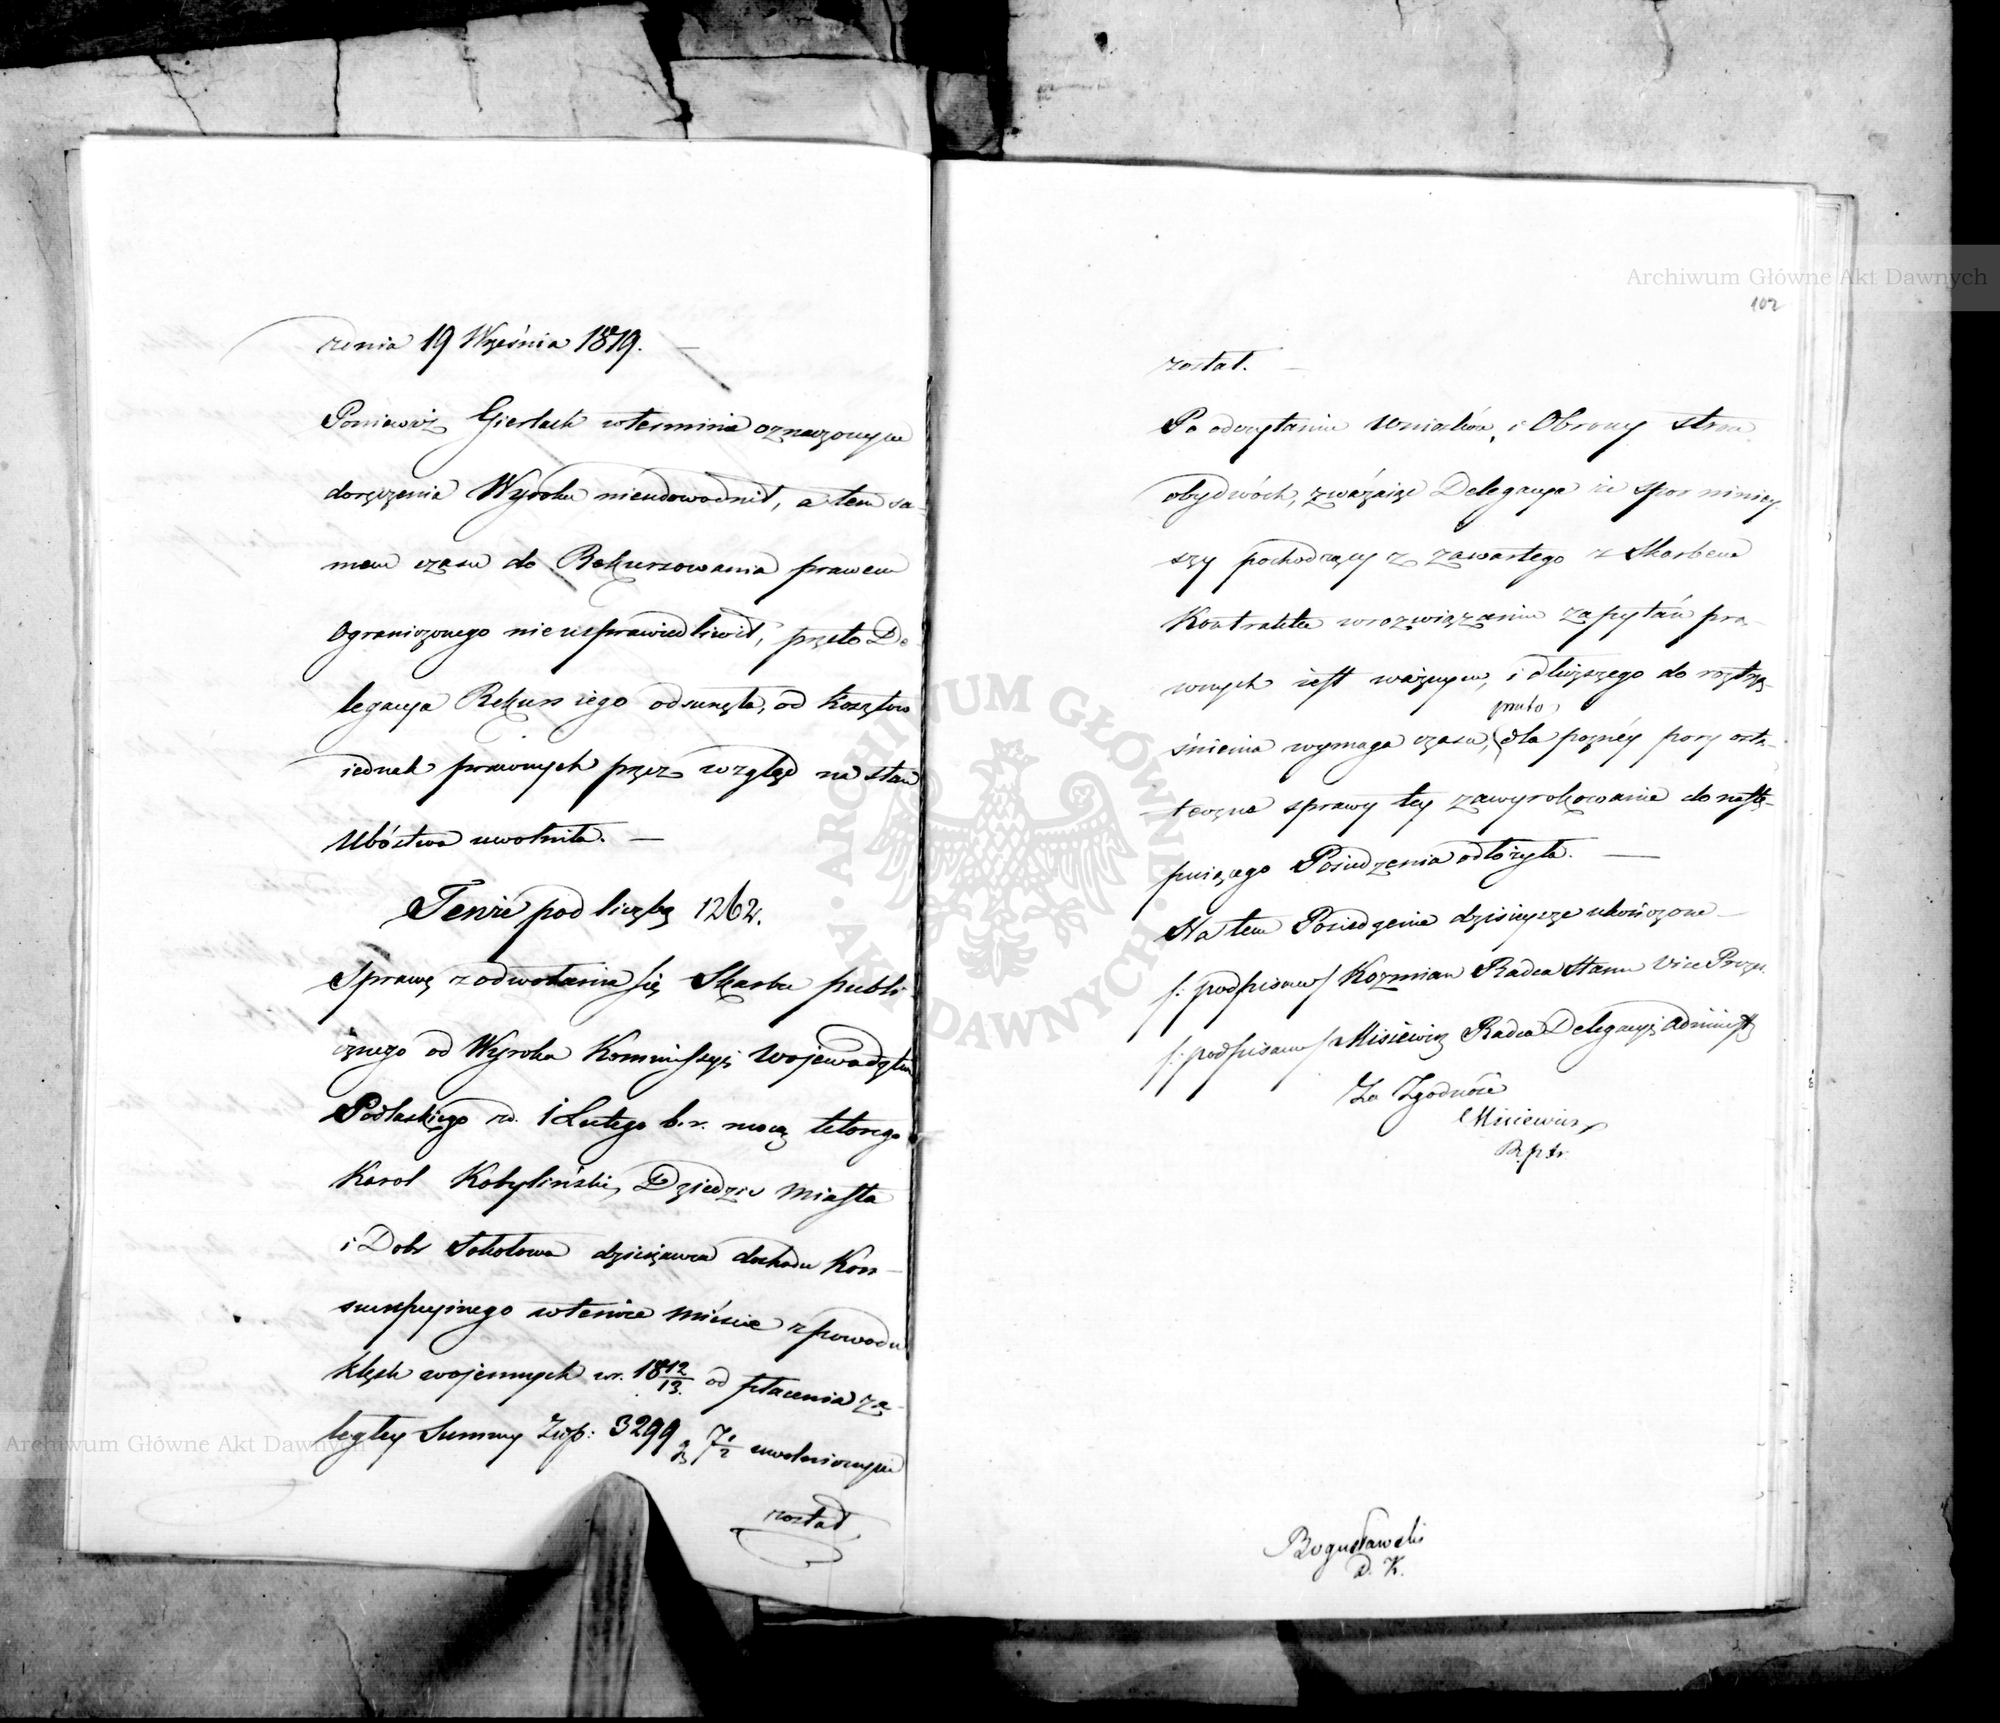 rzenia 19 Września 1819. —
Ponieważ Gierlach w terminie oznaczonym
doręczenia Wyroku nieudowodnił, a tem sa-
mem czasu do Rekursowania prawem
Ograniczonego nieusprawiedliwił, przeto De-
legacya Rekurs iego odsunęła, od kosztów
iednak prawnych przez wzgląd na stan
Ubóstwa uwolniła. —
Tenże pod liczbą 1262.
Sprawę z odwołania się Skarbu publi-
cznego od Wyroku Kommissyi Wojewodztwa
Podlaskiego z d. 1 Lutego b. r. mocą którego
Karol Kobyliński, Dziedzic Miasta
i Dobr Sokołowa dzierżawca dochodu Kon-
sumpcyinego w temże mieście z powodu
klęsk wojennych w r. 1812/13. od płacenia za-
ległey Summy Złp: 3299 g 7 1/2 uwolnionym
został,
102
został. —
Po odczytaniu Wniosków, i Obrony stron
obydwóch, zważaiąc Delegacya że spor niniey
szy pochodzący z zawartego z Skarbem
Kontraktu w rozwiązaniu zapytań pra-
wnych iest ważnym, i dłuższego do roztrzą-
przeto
śnienia wymaga czasu, dla pozney pory osta-
teczne sprawy tey zawyrokowanie do nastę-
puiącego Posiedzenia odłożyła. —
Na tem Posiedzenie dzisieysze ukończone —
/: podpisano / Kozmian Radca Stanu Vice Prezes.
/: podpisano / Misiewicz Radca Delegacyi Administr
Za Zgodność
Misiewicz
Bogusławski
D. K.
Archiwum Główne Akt Dawnych
Archiwum Główne Akt Dawnych
· ARCHIWUM GŁÓWNE · AKT DAWNYCH